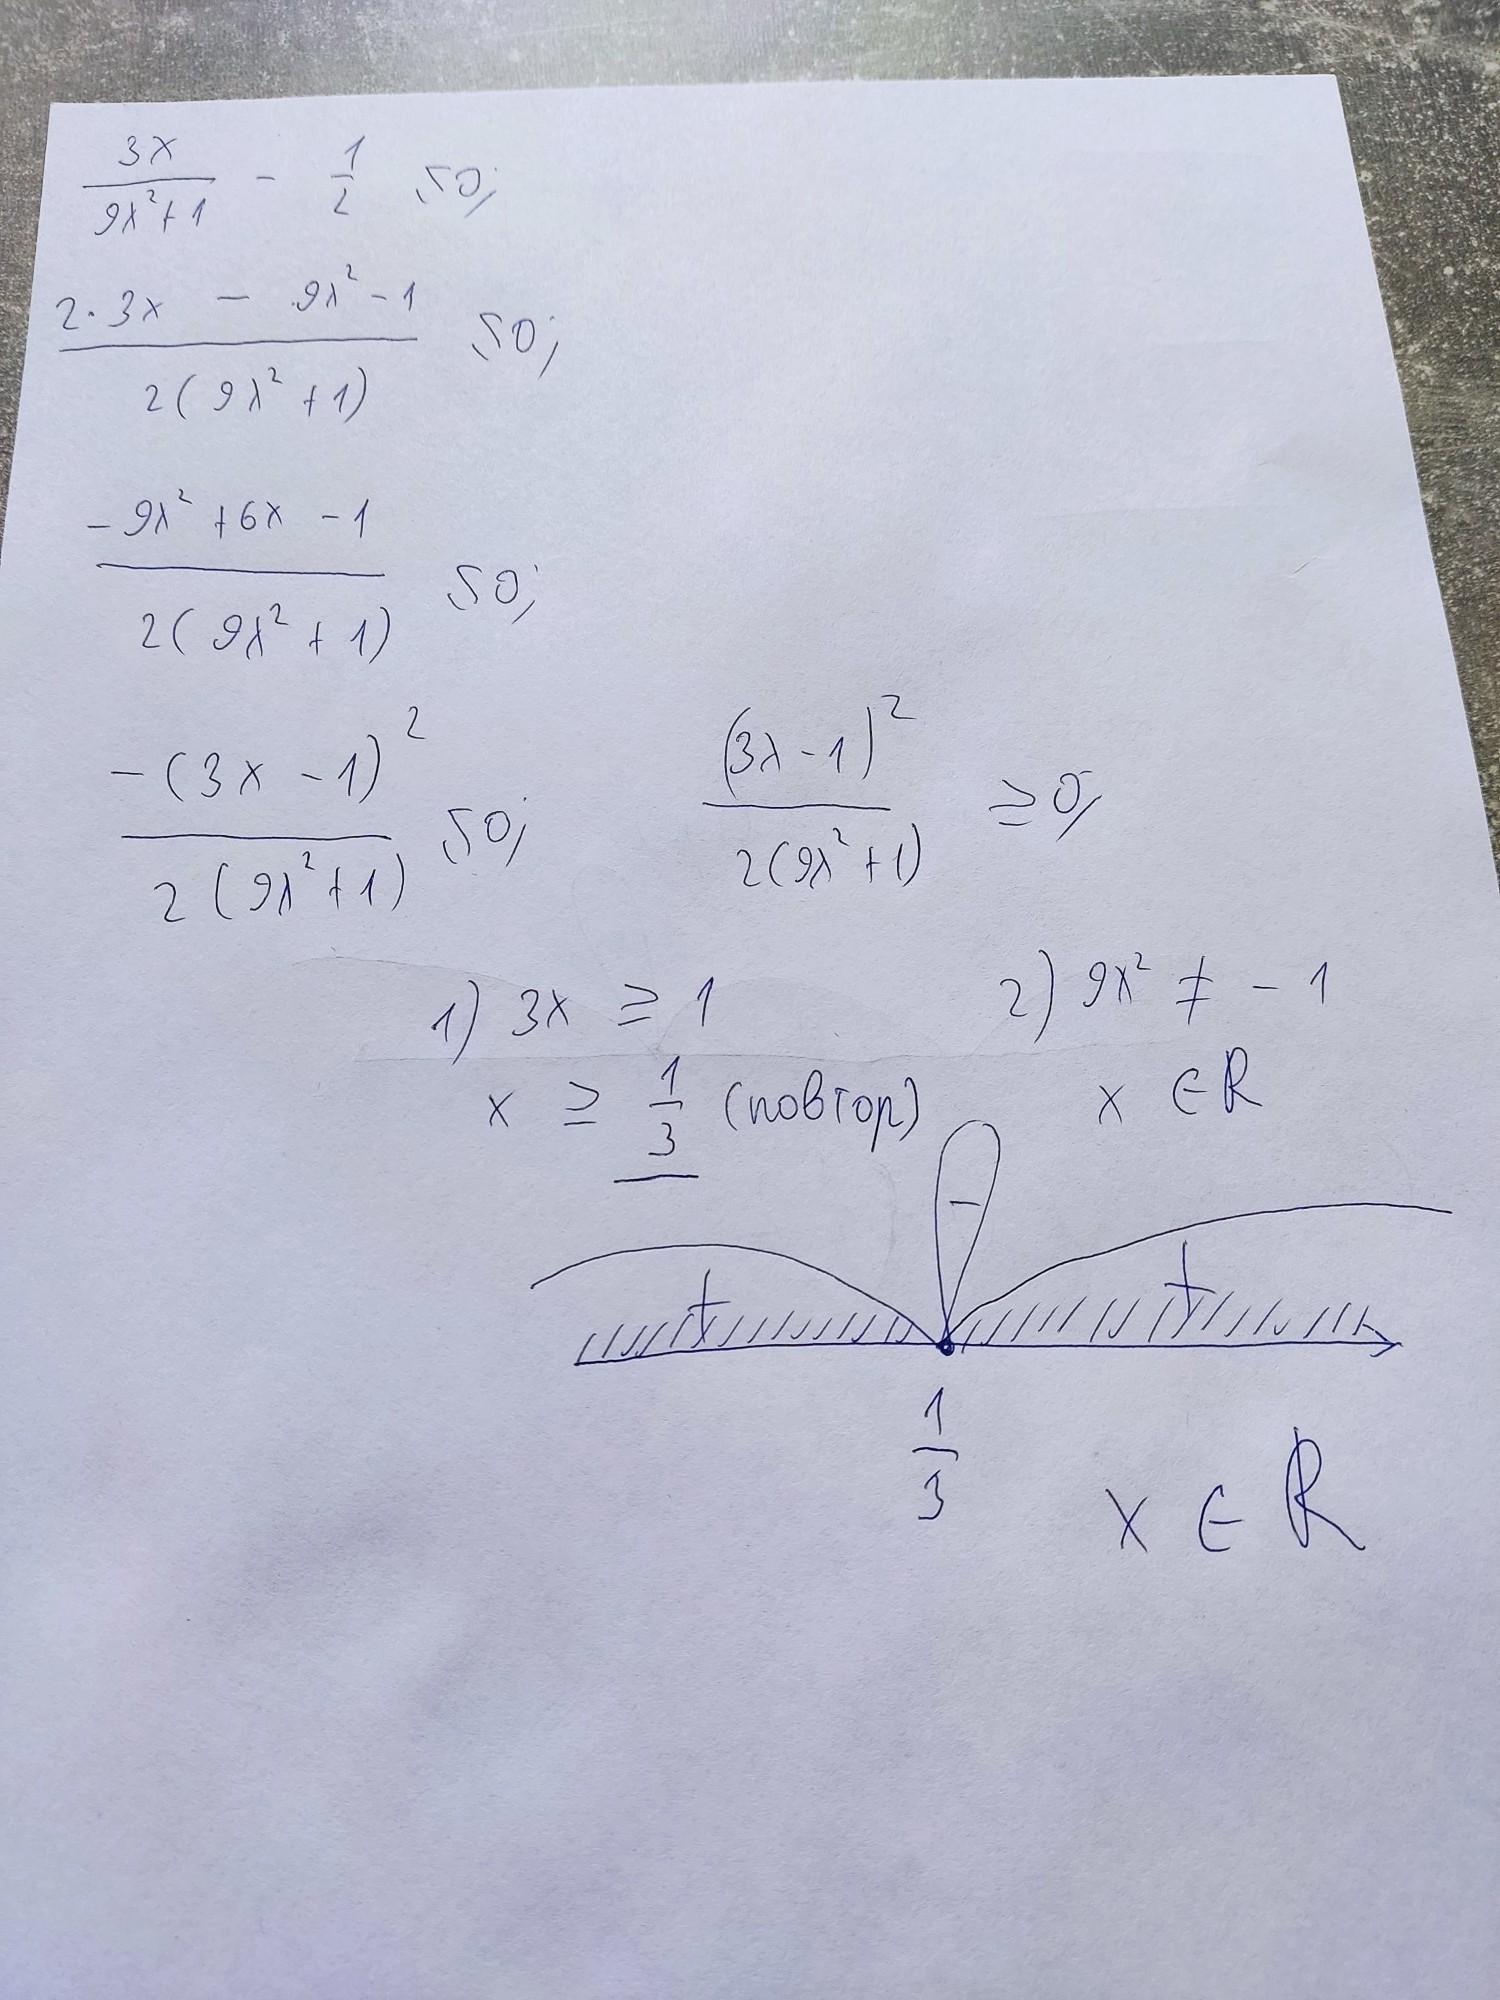 3x/(9x²+1) - 1/2 ≤0;
(2·3x - 9x²-1)/(2(9x²+1)) ≤0;
(-9x²+6x-1)/(2(9x²+1)) ≤0;
-(3x-1)²/(2(9x²+1)) ≤0; (3x-1)²/(2(9x²+1)) ≥0;
1) 3x ≥ 1 2) 9x² ≠ -1
x ≥ 1/3 (повтор) x ∈ R
+ - +
1/3
x ∈ R